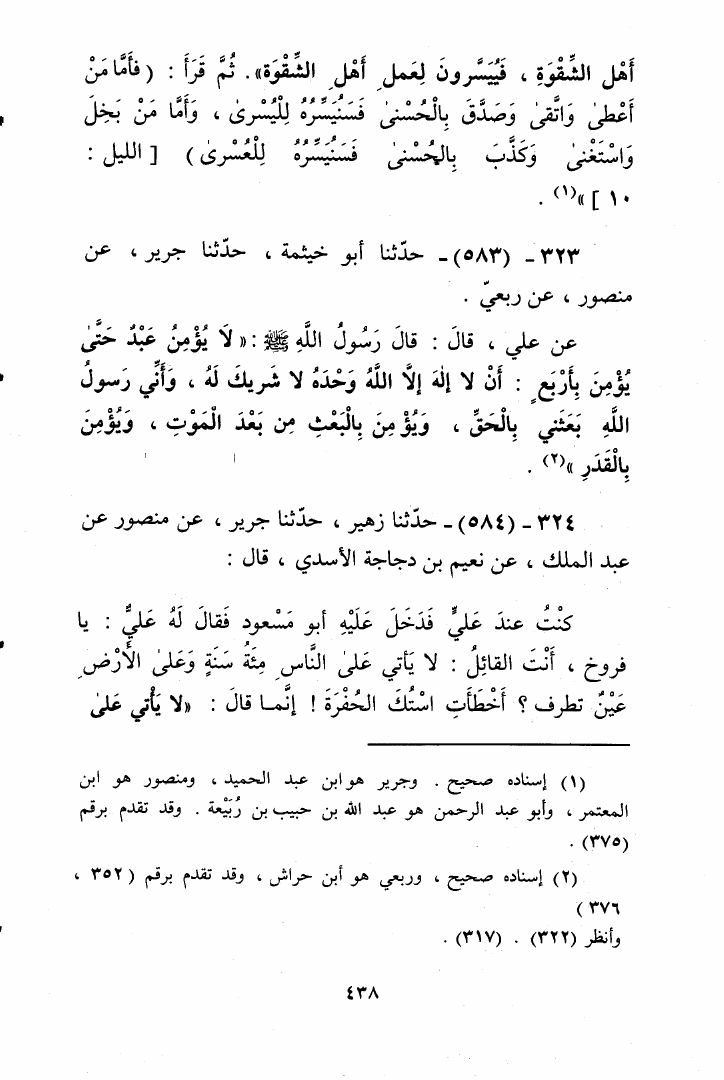 أَهْلِ الشِّقْوَةِ ، فَيُيَسَّرونَ لِعَملِ أَهْلِ الشِّقْوَة» . ثُمَّ قَرَأَ : ( فأمَّا مَنْ
أَعْطىٰ وَاتَّقىٰ وَصَدَّقَ بِالْحُسْنىٰ فَسَنُيَسِّرُهُ لِلْيُسْرىٰ ، وَأَمَّا مَنْ بَخِلَ
وَاسْتَغْنىٰ وَكَذَّبَ بِالحُسْنىٰ فَسَنُيَسِّرُهُ لِلْعُسْرىٰ ) [ الليل :
١٠ ] »(١) .
٣٢٣ - (٥٨٣) - حدّثنا أبو خيثمة ، حدّثنا جرير ، عن
منصور ، عن ربعيّ .
عن علي ، قالَ : قالَ رَسُولُ اللَّهِ ﷺ : « لَا يُؤْمِنُ عَبْدٌ حَتَّىٰ
يُؤْمِنَ بِأَرْبَعٍ : أَنْ لا إلٰهَ إلاَّ اللَّهُ وَحْدَهُ لا شَريكَ لَهُ ، وَأَنِّي رَسولُ
اللَّهِ بَعَثَني بِالْحَقِّ ، وَيُؤْمِنَ بِالْبَعْثِ مِن بَعْدَ الْمَوْتِ ، وَيُؤْمِنَ
بِالْقَدَرِ »(٢) .
٣٢٤ - (٥٨٤) - حدّثنا زهير ، حدّثنا جرير ، عن منصور عن
عبد الملك ، عن نعيم بن دجاجة الأسدي ، قال :
كنْتُ عندَ عَليٍّ فَدَخَلَ عَلَيْهِ أبو مَسْعود فَقالَ لَهُ عَليٌّ : يا
فروخ ، أَنْتَ القائِلُ : لا يَأتي عَلىٰ النَّاسِ مِئَةُ سَنَةٍ وَعَلىٰ الأَرْضِ
عَيْنٌ تطرف ؟ أَخْطَأَتِ اسْتُكَ الحُفْرَةَ ! إنَّمـا قالَ : « لا يَأْتي عَلىٰ
(١) إسناده صحيح . وجرير هو ابن عبد الحميد ، ومنصور هو ابن
المعتمر ، وأبو عبد الرحمن هو عبد الله بن حبيب بن رُبَيْعة . وقد تقدم برقم
(٣٧٥) .
(٢) إسناده صحيح ، وربعي هو أبن حراش ، وقد تقدم برقم (٣٥٢ ،
٣٧٦ )
وأنظر (٣٢٢) . (٣١٧) .
٤٣٨